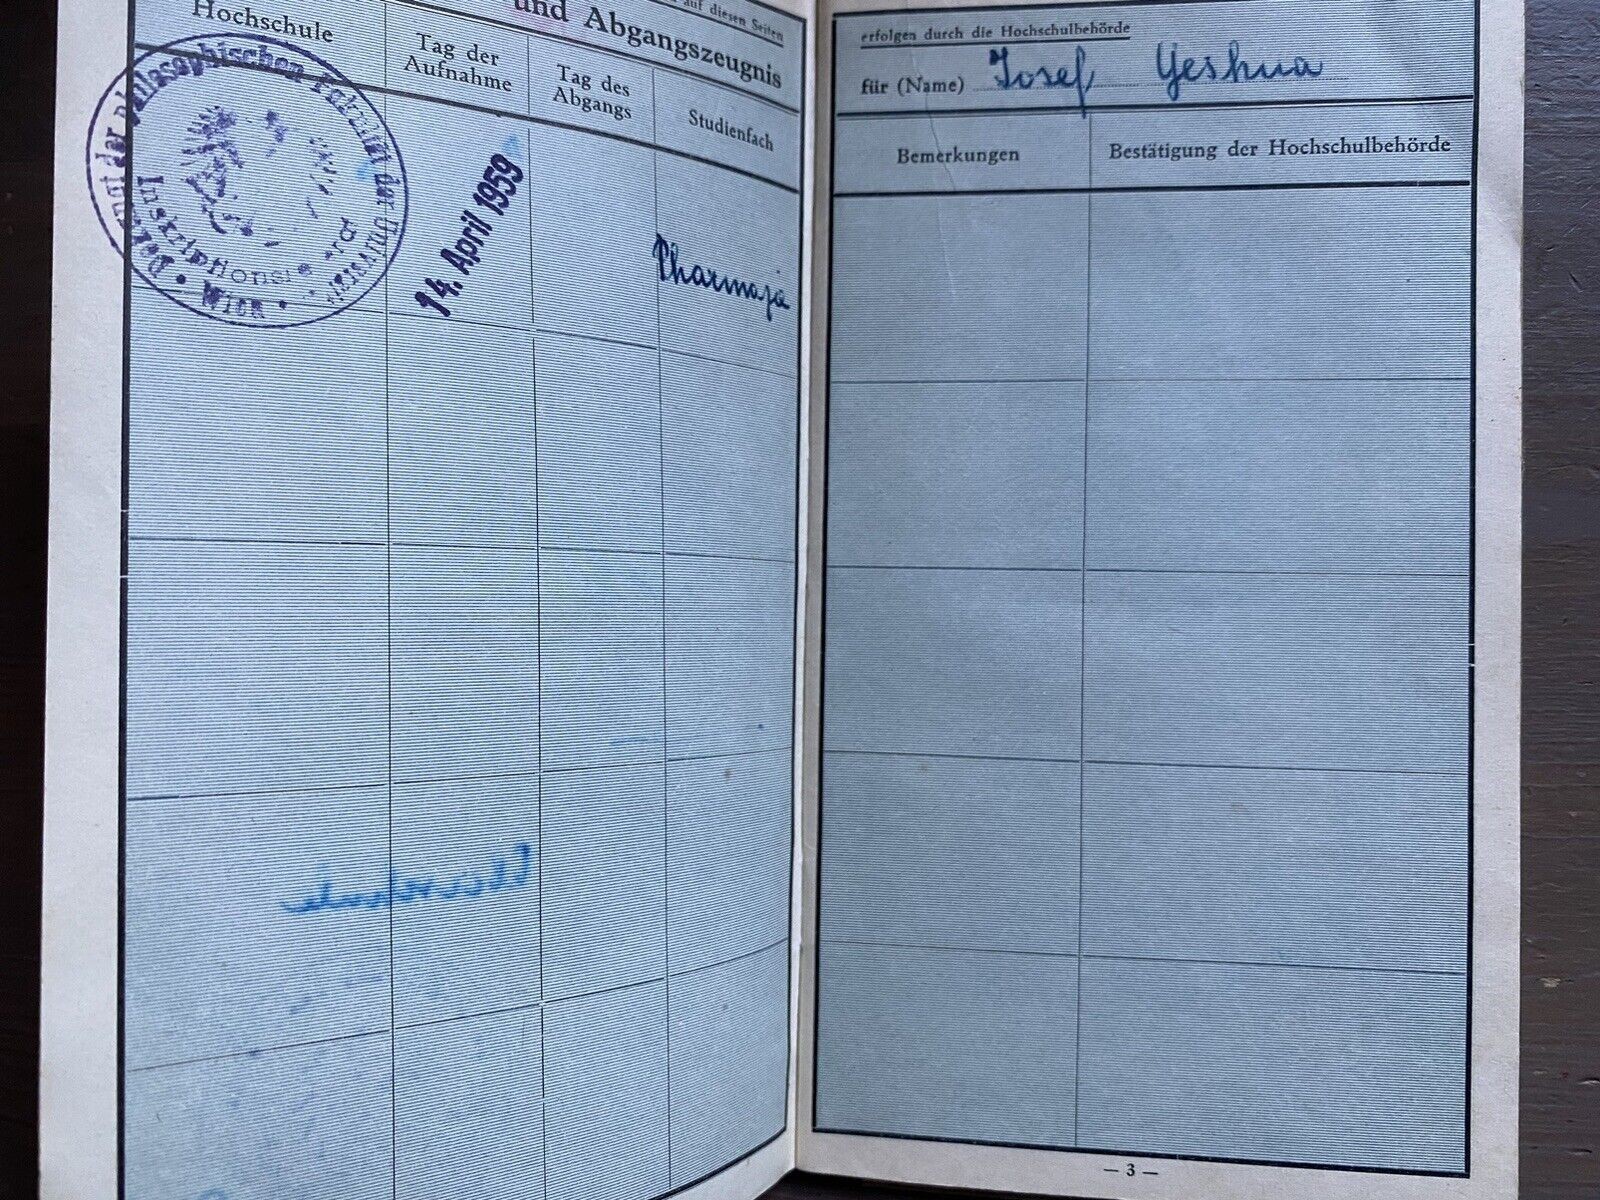 auf diesen Seiten
und Abgangszeugnis
Hochschule
Tag der
Aufnahme
Tag des
Abgangs
Studienfach
der philosophischen Fakultät der
Wien
14. April 1959
Pharmazie
erfolgen durch die Hochschulbehörde
für (Name) Josef Yeshua
Bemerkungen
Bestätigung der Hochschulbehörde
— 3 —